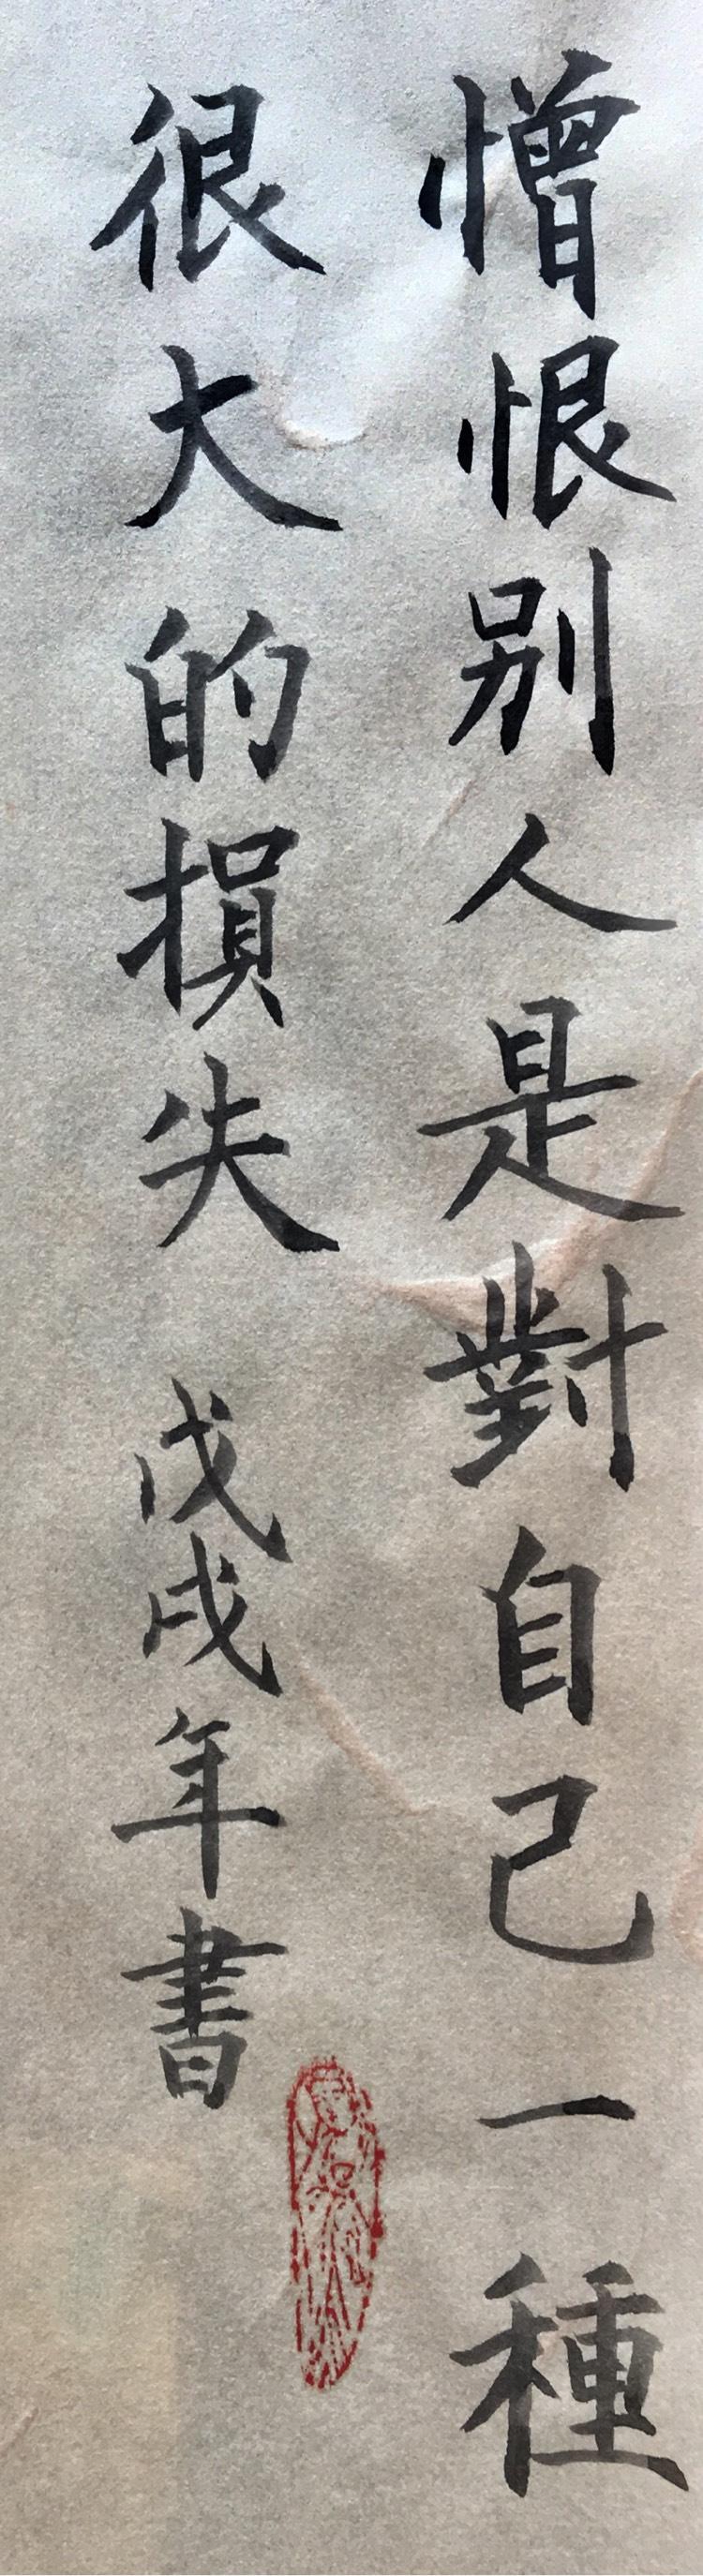 憎恨别人是對自己一種
很大的損失 戊戌年書